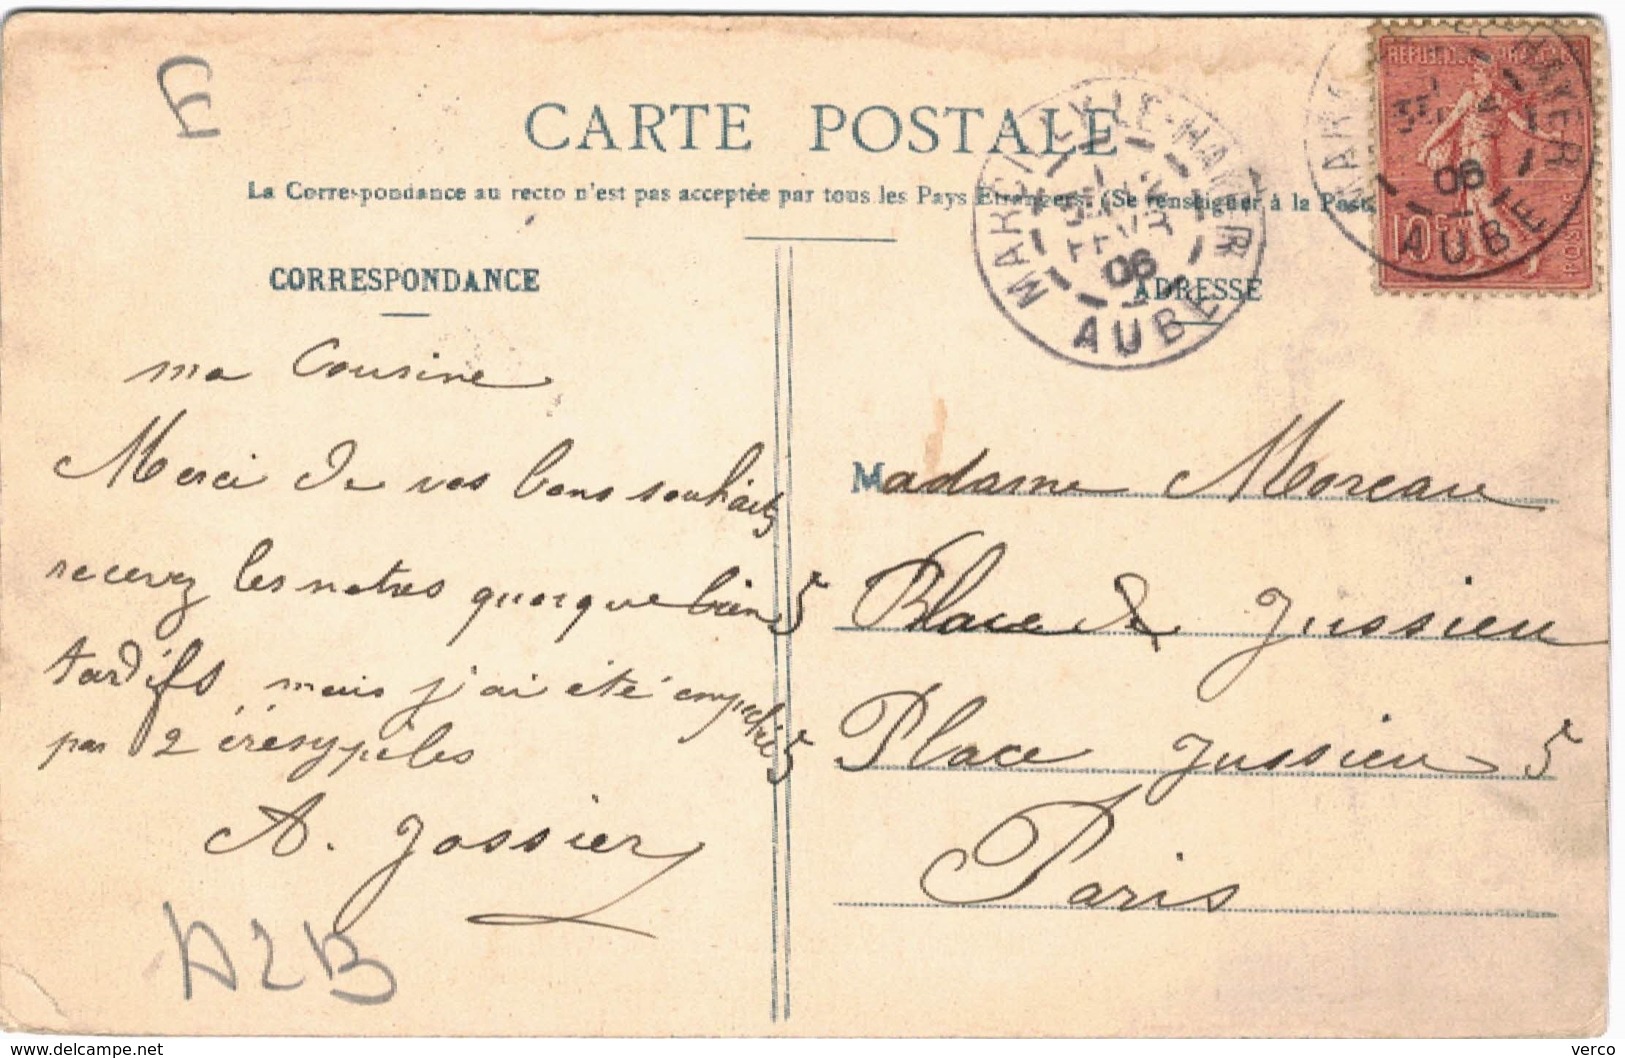 CARTE POSTALE
La Correspondance au recto n'est pas acceptée par tous les Pays Etrangers. (Se renseigner à la Poste
CORRESPONDANCE
ma Cousine
Merci de vos bons souhaits
recevez les notres quoique bien
tardifs, mais j'ai été empeché
par 2 érésypèles
A. Jossier
A2B
MARCILLY-LE-HAYER
06
AUBE
ADRESSE
REPUBLIQUE FRANCAISE
10c
POSTES
MARCILLY-LE-HAYER
06
AUBE
Madame Moreau
5 Place de Jussieu
5 Place Jussieu 5
Paris
www.delcampe.net
verco